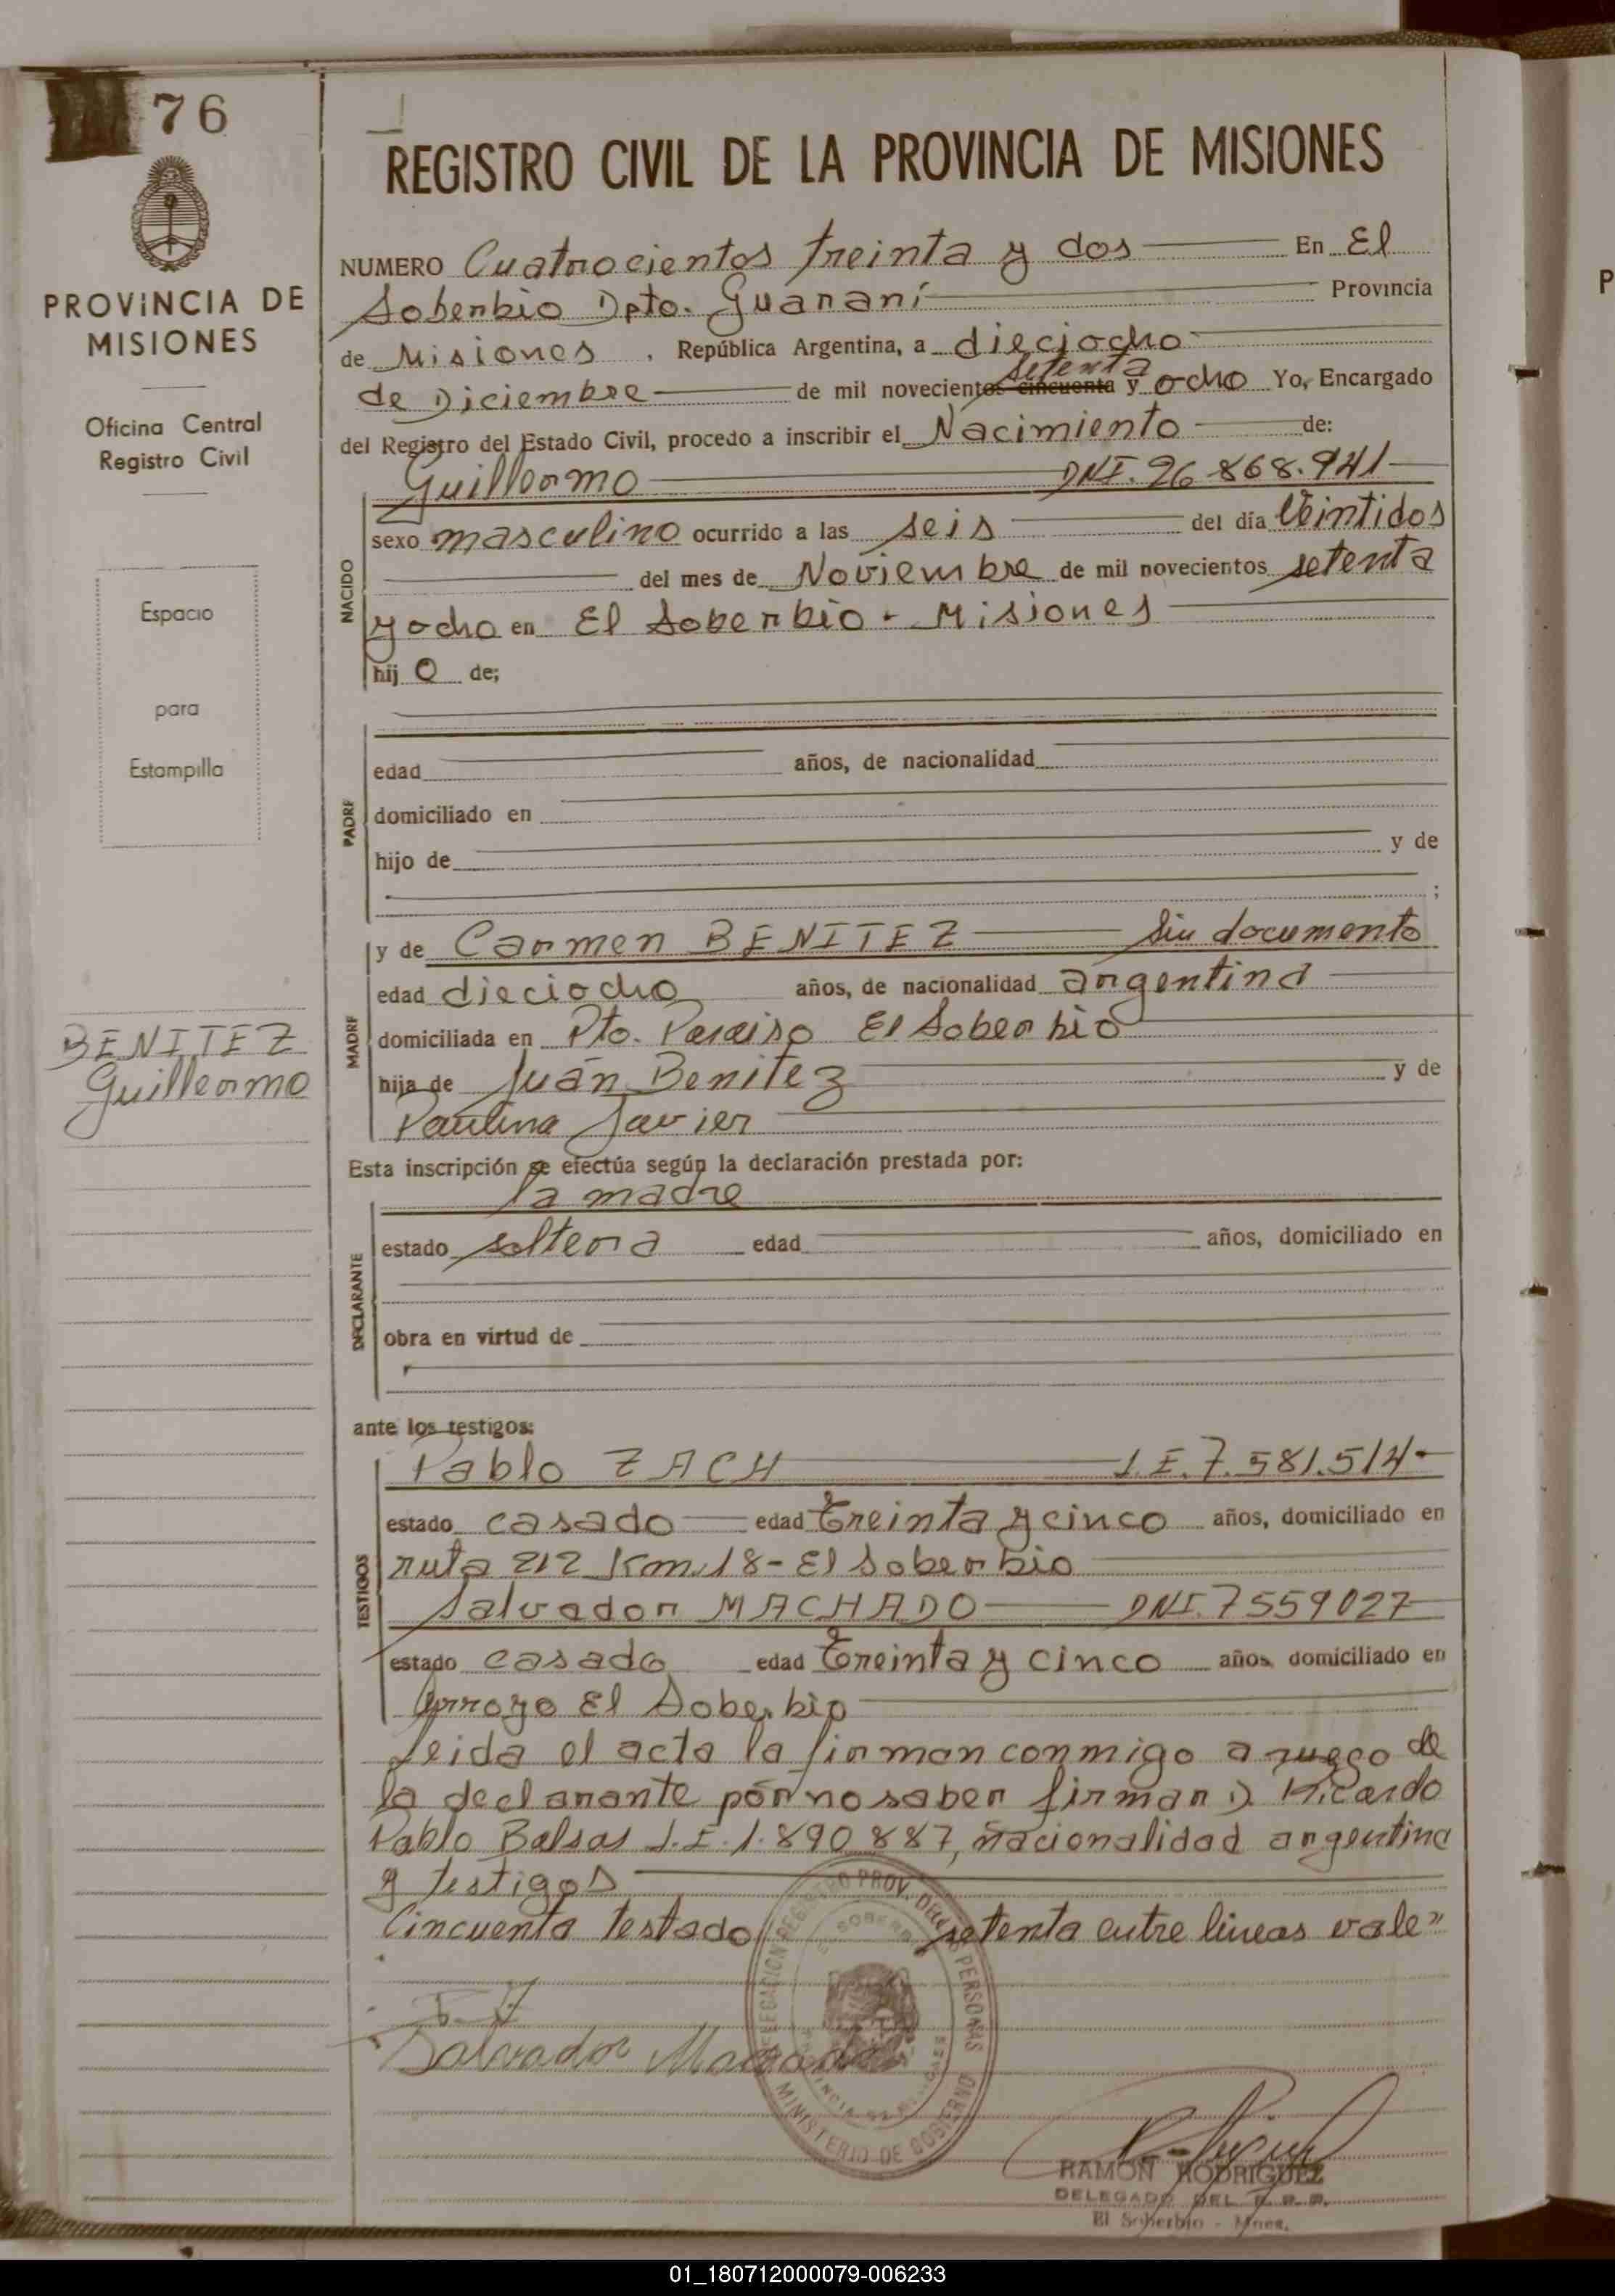 76
PROVINCIA DE
MISIONES
Oficina Central
Registro Civil
Espacio
para
Estampilla
BENITEZ
Guillermo
REGISTRO CIVIL DE LA PROVINCIA DE MISIONES
NUMERO Cuatrocientos treinta y dos En El
Soberbio Dpto. Guaraní Provincia
de Misiones , República Argentina, a dieciocho
setenta
de Diciembre de mil novecientos cincuenta y ocho Yo, Encargado
del Registro del Estado Civil, procedo a inscribir el Nacimiento de:
Guillermo DNI. 26.868.941
NACIDO
sexo masculino ocurrido a las seis del día Veintidos
del mes de Noviembre de mil novecientos setenta
y ocho en El Soberbio - Misiones
hij o de;
PADRE
edad años, de nacionalidad
domiciliado en
hijo de y de
;
MADRE
y de Carmen BENITEZ Sin documento
edad dieciocho años, de nacionalidad argentina
domiciliada en Pto. Paraiso El Soberbio
hija de Juán Benitez y de
Paulina Javier
Esta inscripción se efectúa según la declaración prestada por:
la madre
DECLARANTE
estado soltera edad años, domiciliado en
obra en virtud de
ante los testigos:
TESTIGOS
Pablo ZACH L.E. 7.581.514-
estado casado edad treinta y cinco años, domiciliado en
ruta 212 Km.18- El Soberbio
Salvador MACHADO DNI. 7559027
estado casado edad treinta y cinco años domiciliado en
Arroyo El Soberbio
Leida el acta la firman conmigo a ruego de
la declarante por no saber firmar D. Ricardo
Pablo Balsas L.E. 1.890.887, nacionalidad argentina
y testigos
Cincuenta testado" setenta entre lineas vale"
Salvador Machado
MINISTERIO DE GOBIERNO
RAMON RODRIGUEZ
DELEGADO DEL R.P.P.
El Soberbio - Mnes.
01_180712000079-006233